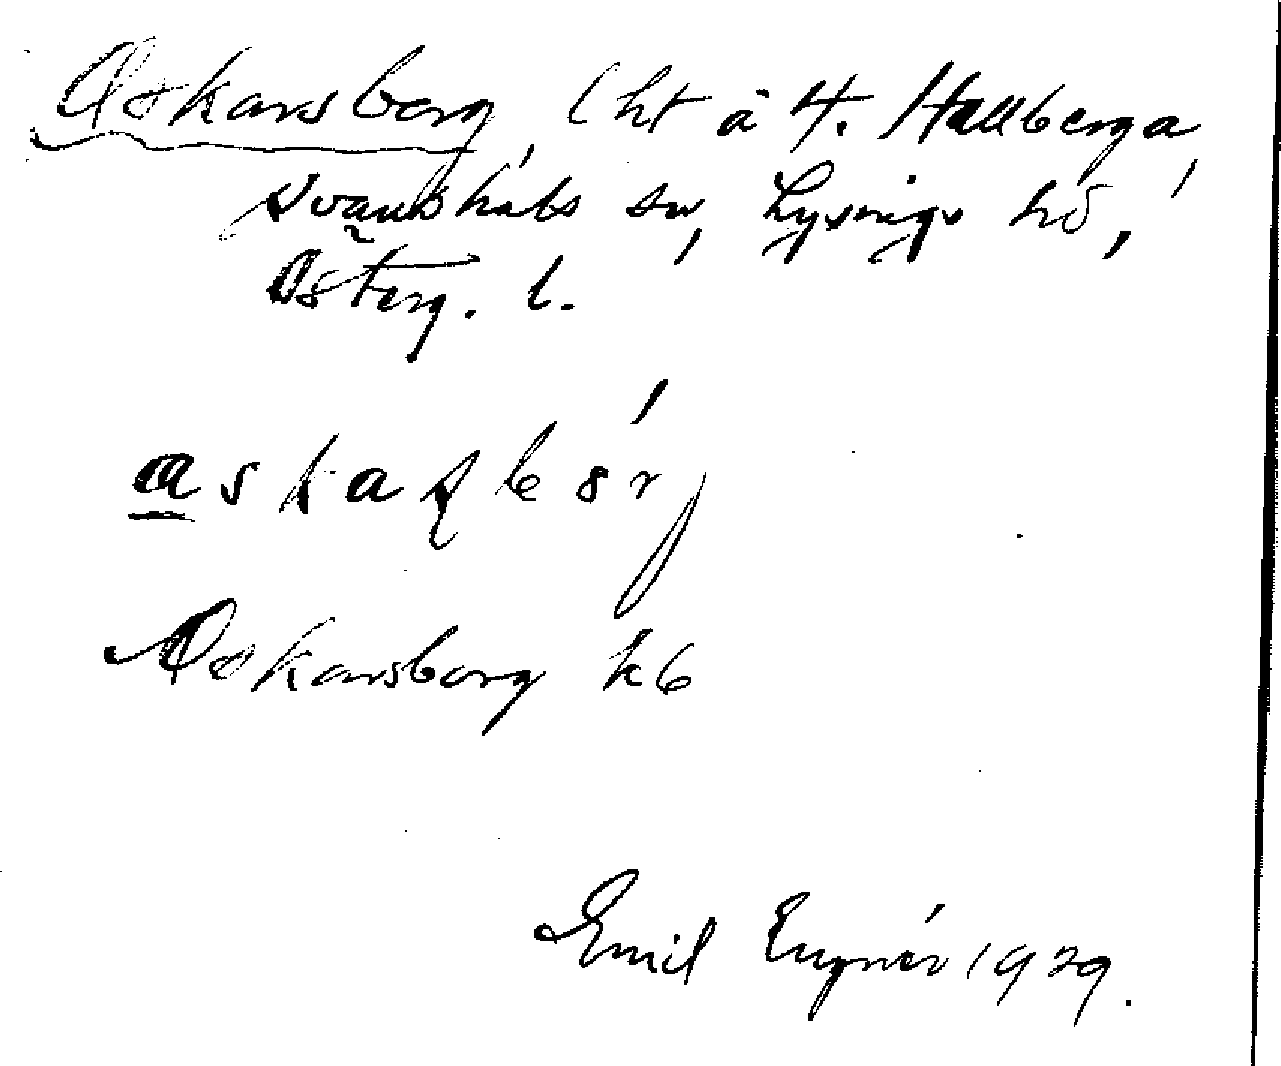 Oskarsborg, lht å 4. Hallberga,
Svanshals sn, Lysings hd,
Österg. l.
Oskarsborg kb
Emil Eugnér 1929.